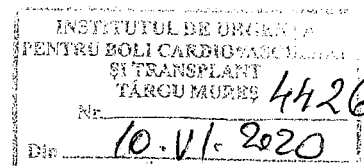 INSTITUTUL DE URGENȚĂ
PENTRU BOLI CARDIOVASCULARE
ȘI TRANSPLANT
TÂRGU MUREȘ
Nr. 4426
Din 10.VI.2020